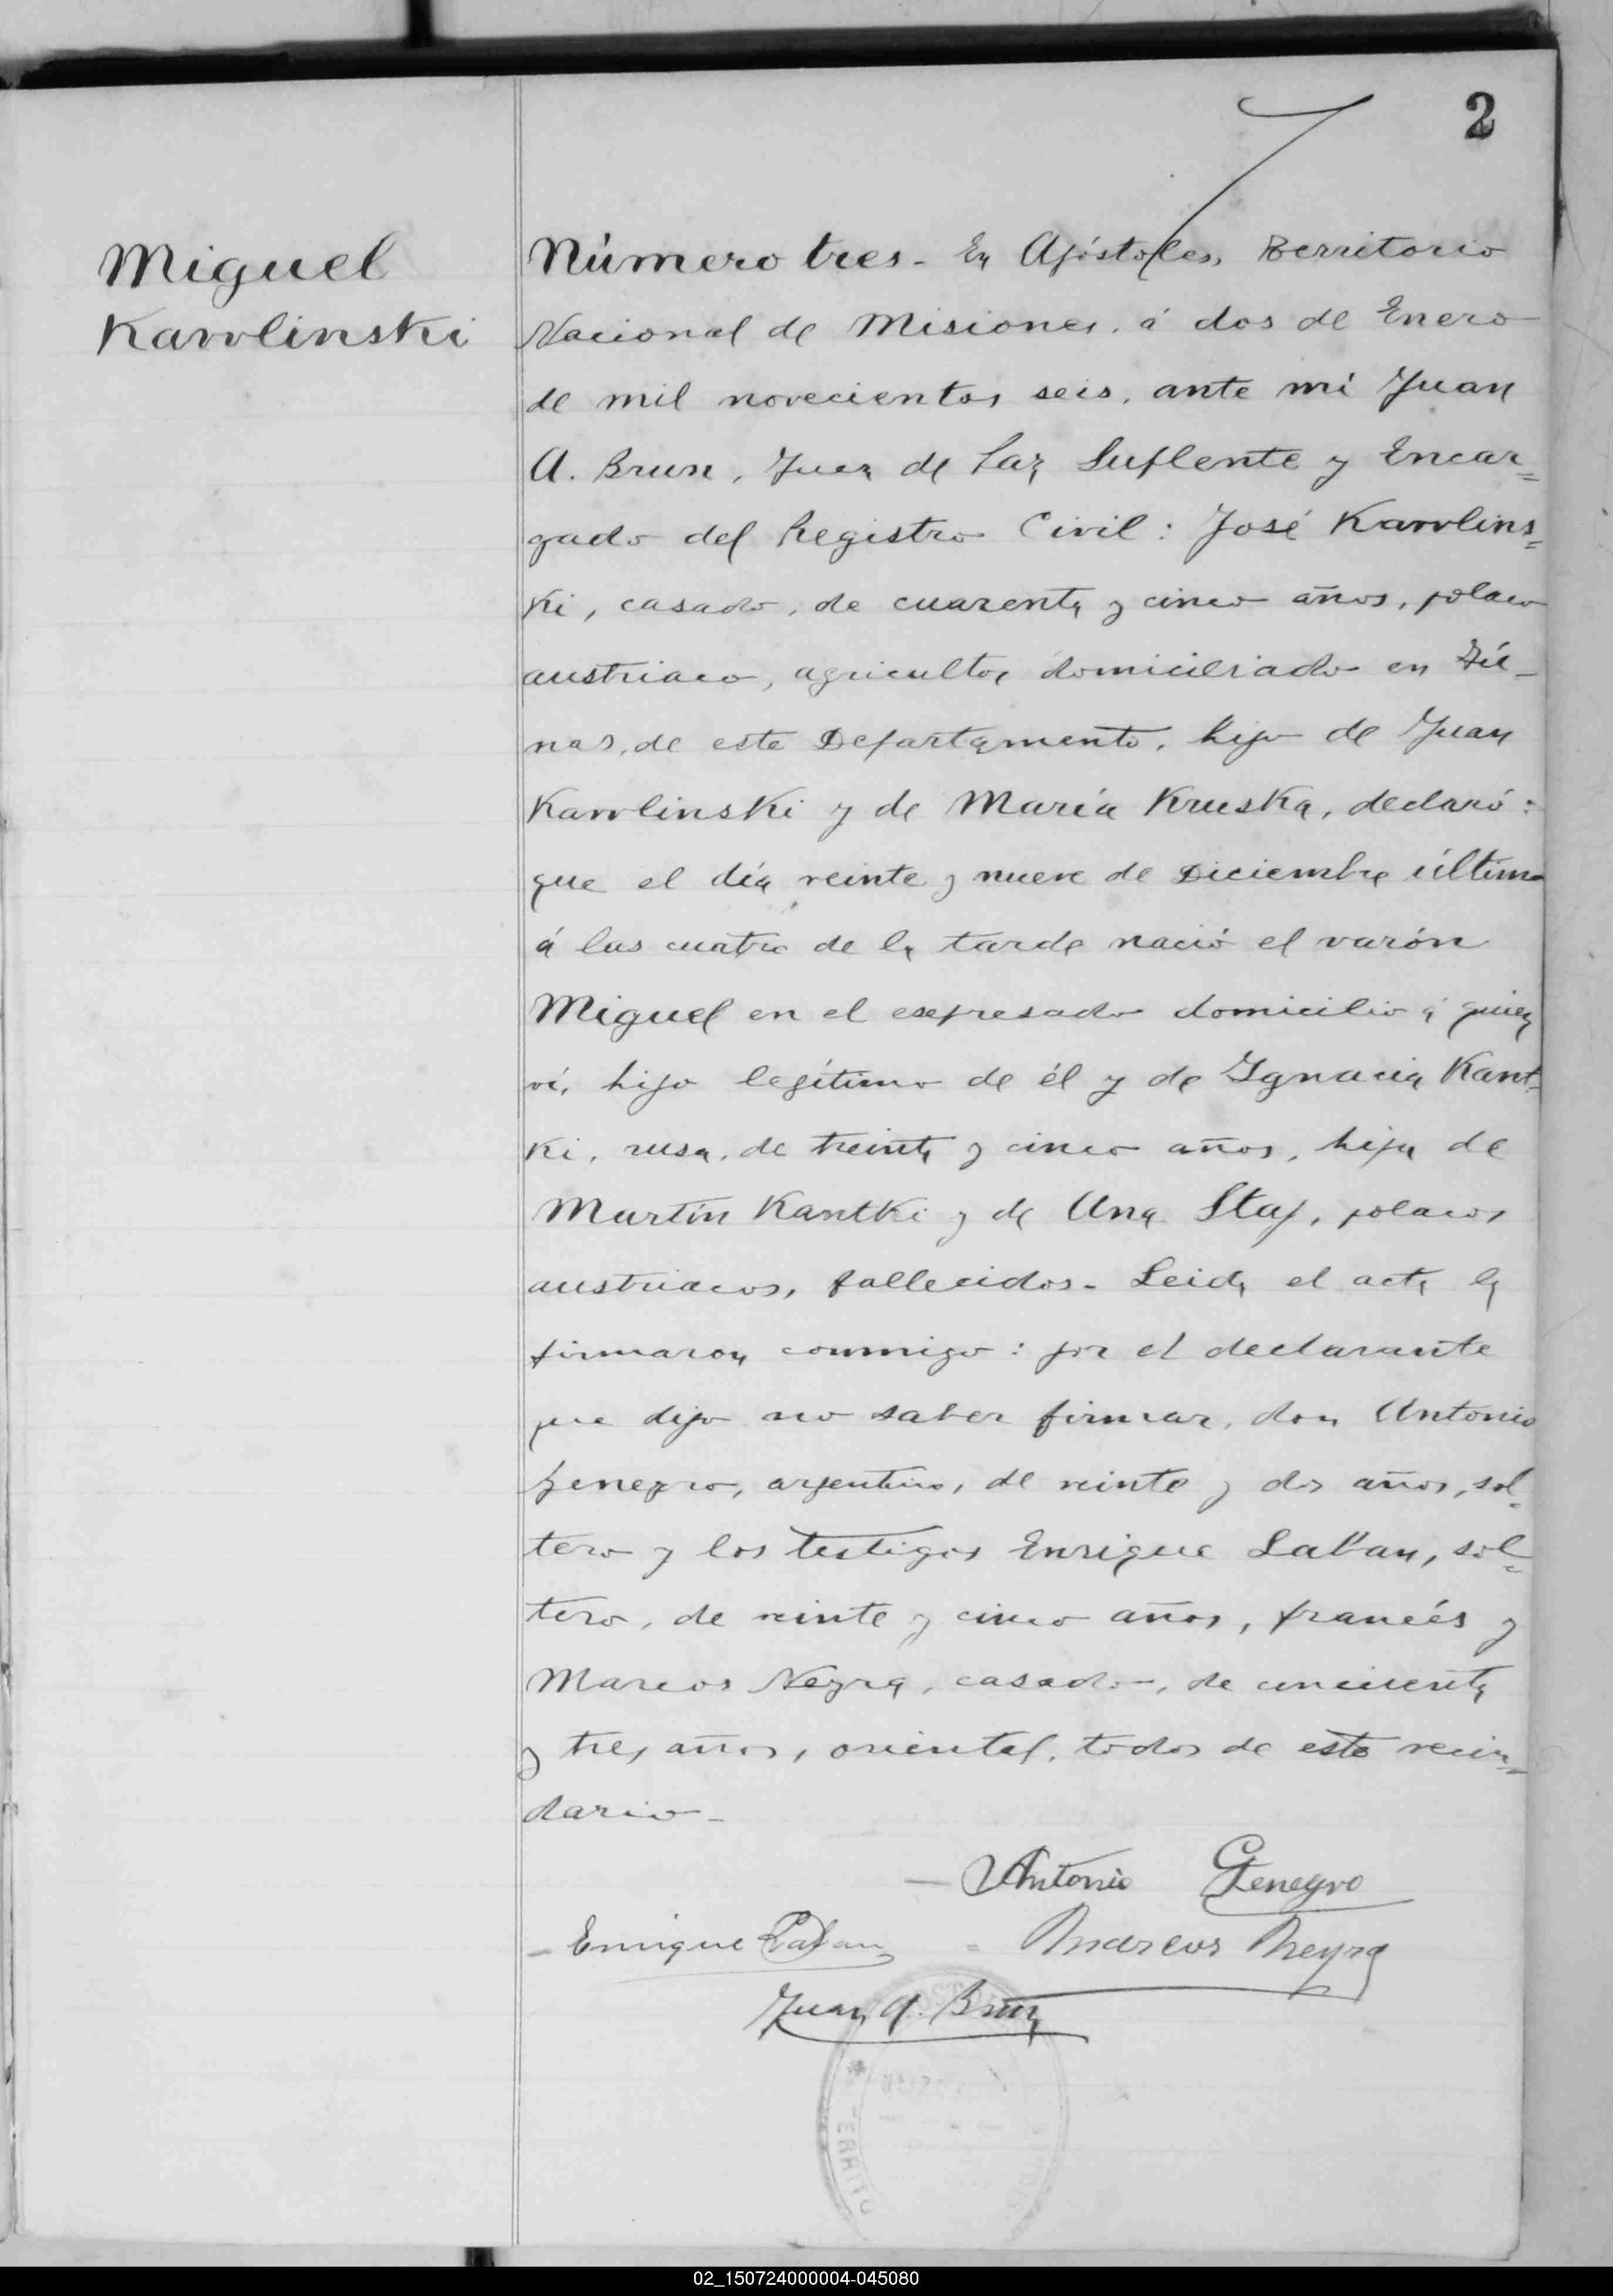 2
Miguel
Kawlinski
Número tres - En Apóstoles, Territorio
Nacional de Misiones, á dos de Enero
de mil novecientos seis, ante mi Juan
A. Brun, Juez de Paz Suplente y Encar=
gado del Registro Civil: José Kawlins=
ki, casado, de cuarenta y cinco años, polaco
austriaco, agricultor domiciliado en
nas, de este Departamento, hijo de Juan
Kawlinski y de María Kruska, declaró:
que el día veinte y nueve de Diciembre último
á las cuatro de la tarde nació el varón
Miguel en el expresado domicilio á quien
ví, hijo legítimo de él y de Ignacia Kant=
ki, rusa, de treinta y cinco años, hija de
Martín Kantki y de Ana Staj, polacos
austriacos, fallecidos - Leida el acta la
firmaron conmigo: por el declarante
que dijo no saber firmar, don Antonio
Genegro, argentino, de veinte y dos años, sol=
tero y los testigos Enrique Laban, sol=
tero, de veinte y cinco años, francés y
Marcos Neyra, casado, de cincuenta
y tres años, oriental, todos de este vecin=
dario -
- Antonio Genegro
- Enrique Laban = Marcos Neyra
Juan A. Brun
TERRITO
02_150724000004-045080